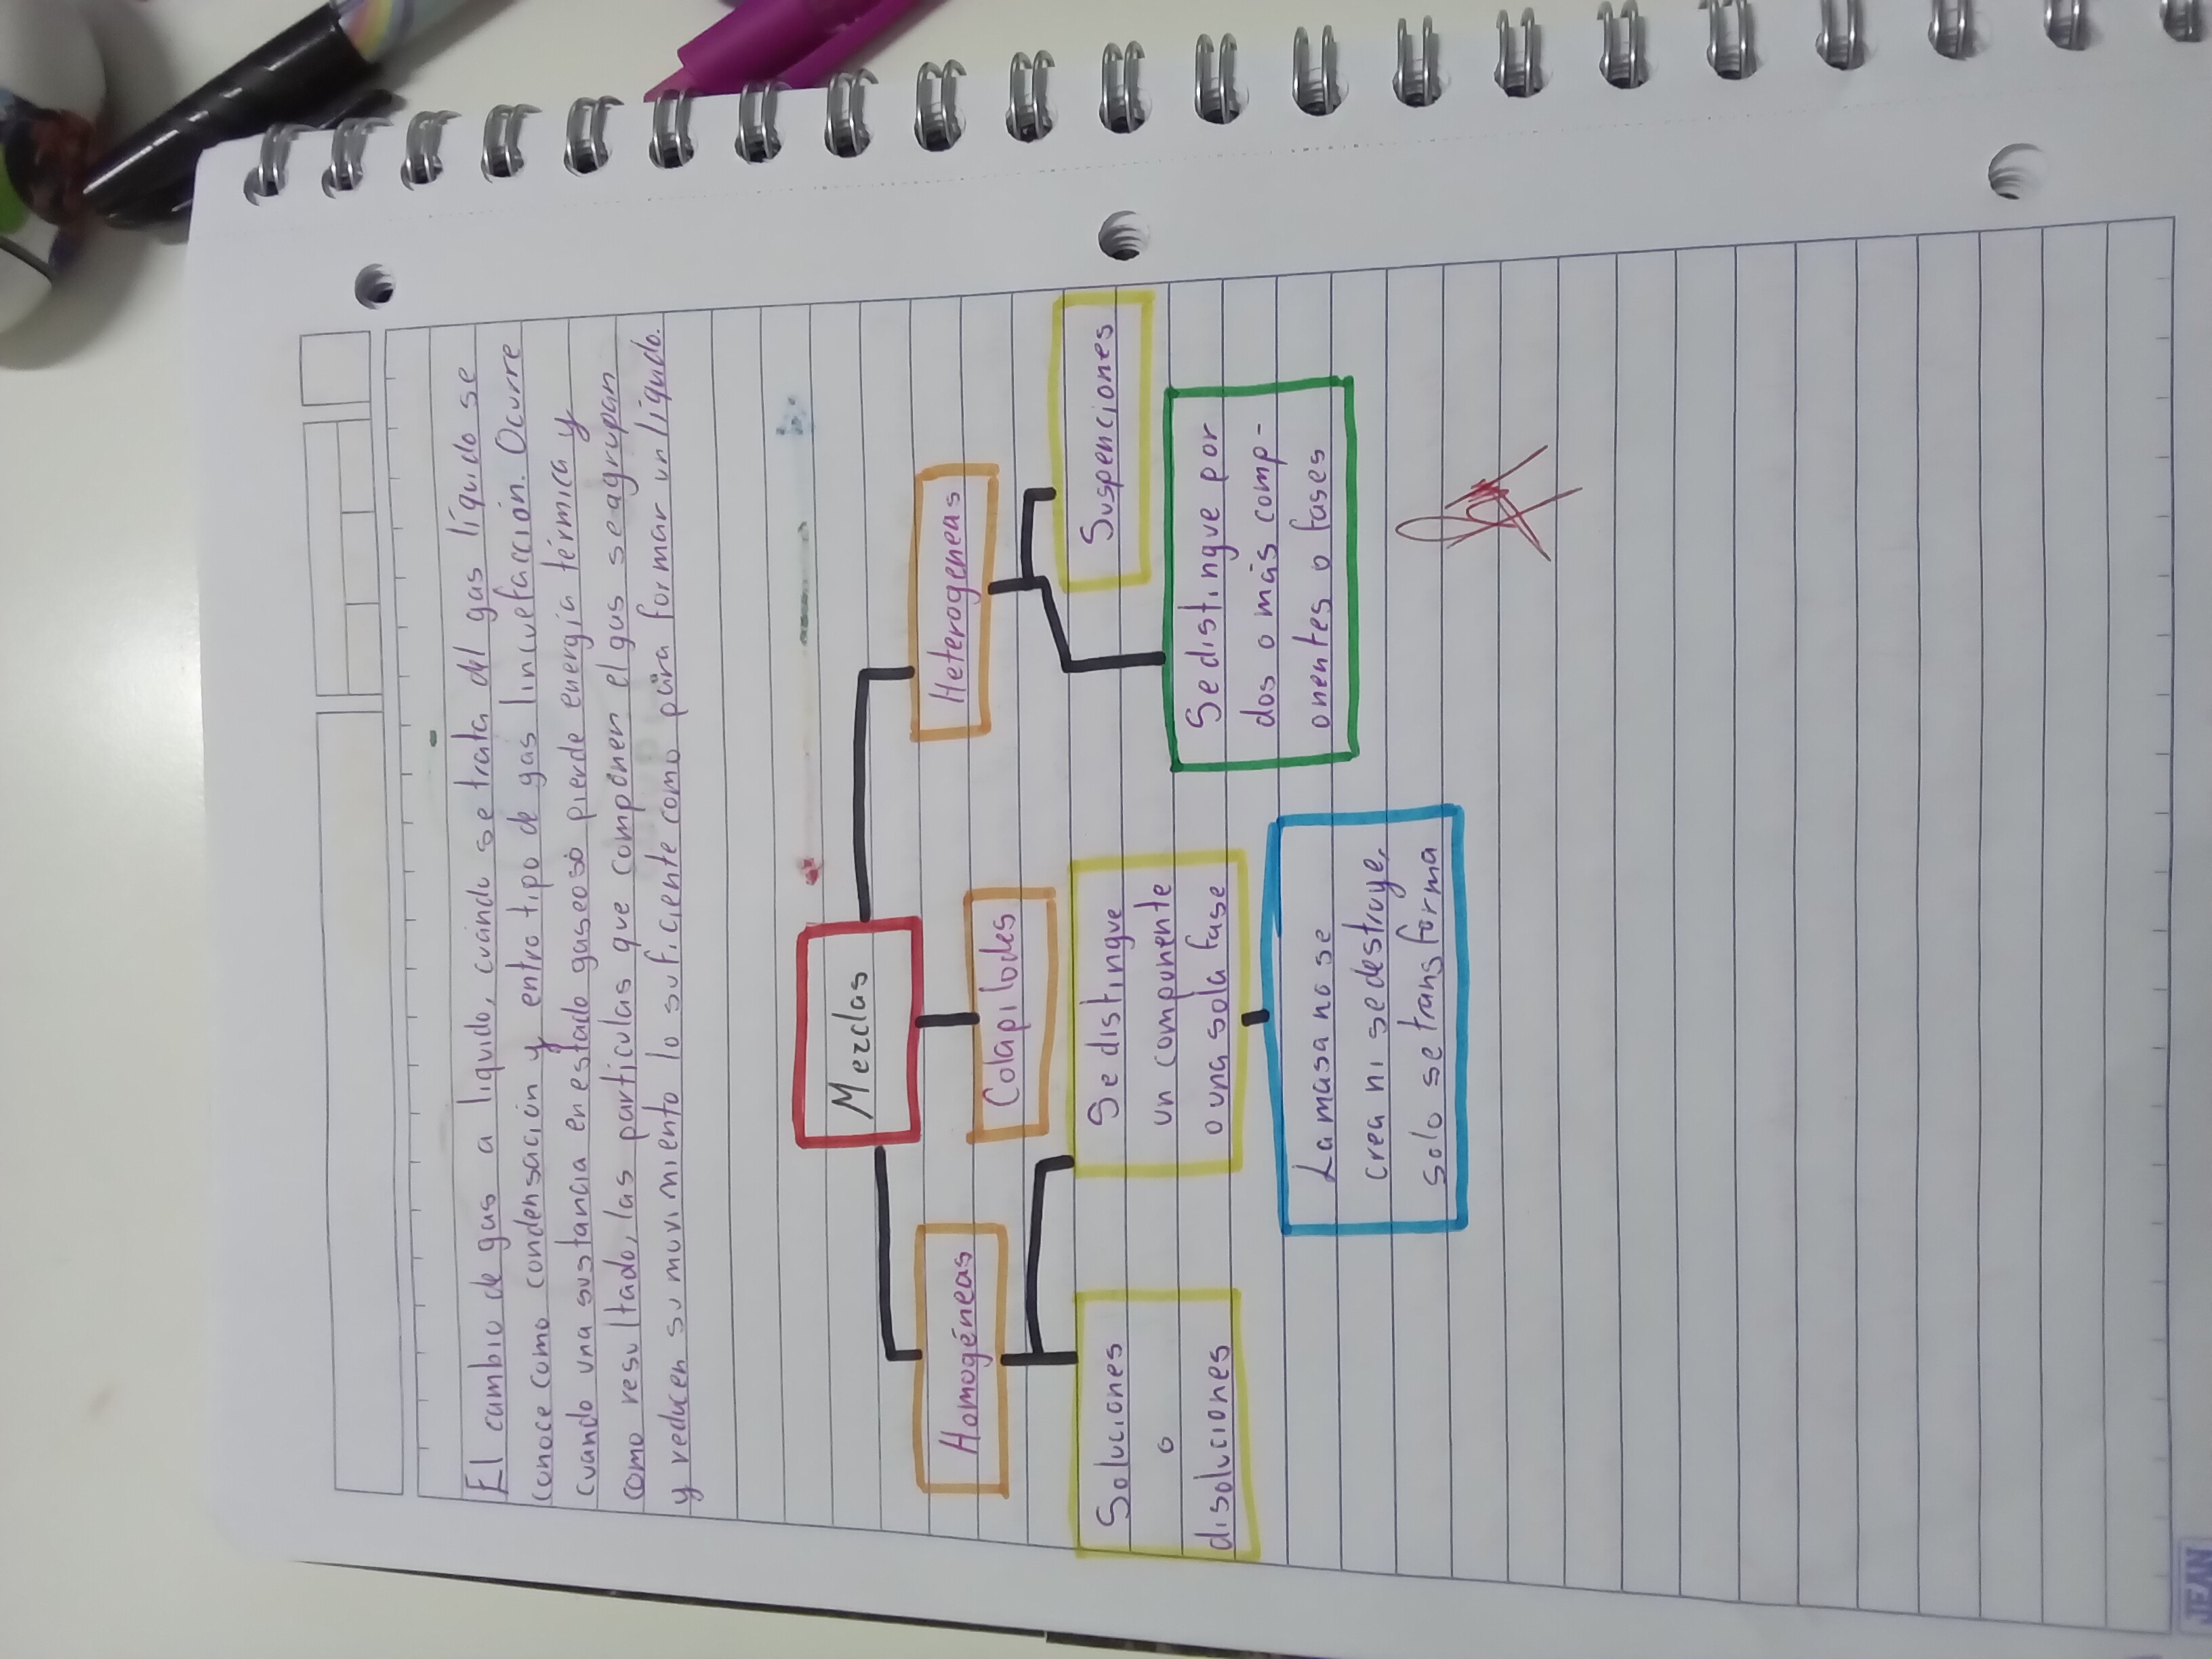 El cambio de gas a liquido, cuándo se trata del gas líquido se
conoce como condensación y entro tipo de gas lincuefacción. Ocurre
cuando una sustancia en estado gaseoso pierde energía térmica y
como resultado, las particulas que componen el gas se agrupan
y reducen su movimiento lo suficiente como para formar un líquido.
Mezclas
Homogéneas
Colapilodes
Heterogeneas
Soluciones
o
disoluciones
Se distingue
un componente
o una sola fase
Suspenciones
Se distingue por
dos o más comp-
onentes o fases
La masa no se
crea ni se destruye,
solo se transforma
JEAN